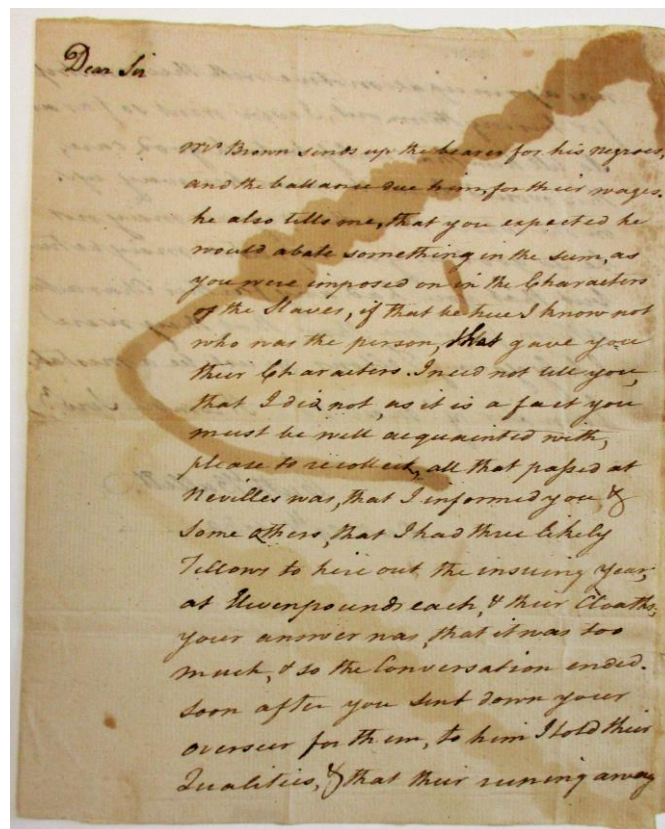 Dear Sir
Mr Brown sends up the bearer for his Negroes,
and the ballance due him, for their wages.
he also tells me, that you expected he
would abate something in the sum, as
you were imposed on in the Characters
of the Slaves, if that be true I know not
who was the person, that gave you
their Characters. I need not tell you,
that I did not, as it is a fact you
must be well acquainted with,
please to recollect, all that passed at
Nevilles was, that I informed you, &
some others, that I had three likely
Fellows to hire out the insuing year,
at Elevenpounds each, & their Cloaths,
your answer was, that it was too
much, & so the Conversation ended.
soon after you sent down your
overseer for them, to him I told their
Qualities, & that their runing away